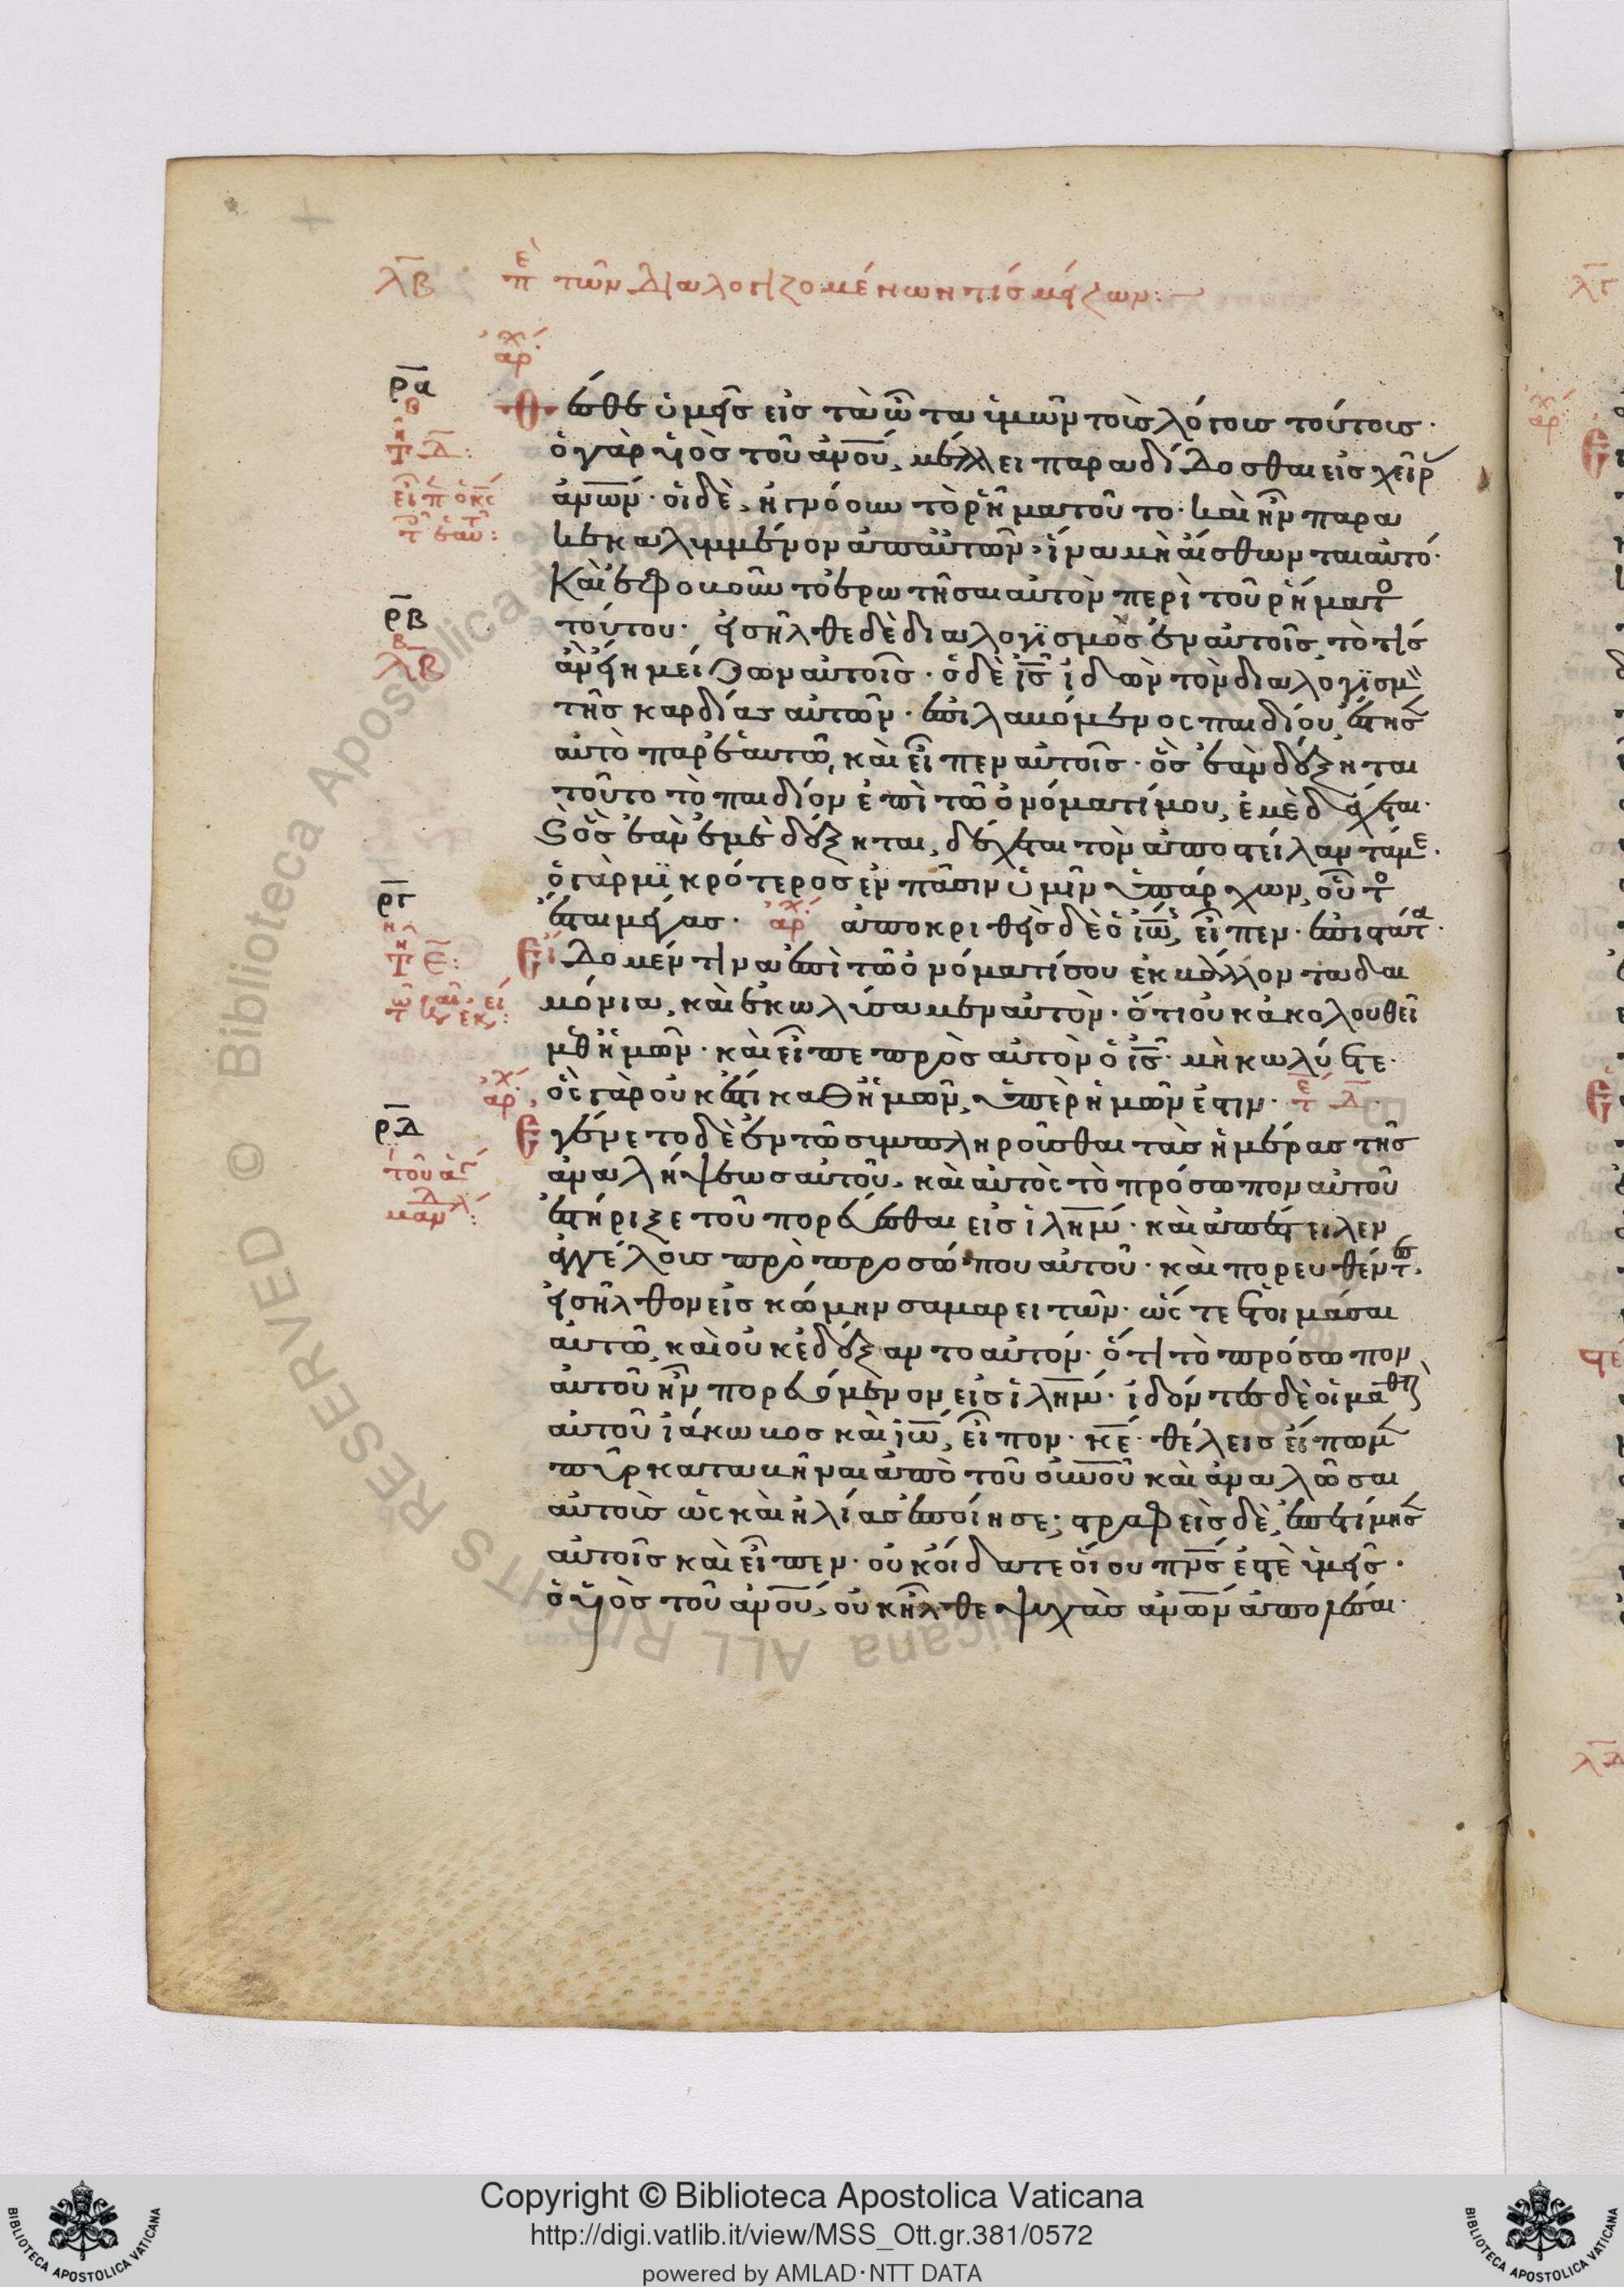 λβ πε τῶν διαλογιζομένων τίς μείζων:
ἀρχ
ρα
Θέσθε ὑμεῖς εἰς τὰ ὦτα ὑμῶν τοῖς λόγοις τούτοις·
ὁ γὰρ υἱὸς τοῦ ἀνου, μέλλει παραδίδοσθαι εἰς χεῖρ
ἀνων· οἱ δὲ, ἠγνόουν τὸ ρῆμα τοῦτο· καὶ ἦν παρα
κεκαλυμμένον ἀπ αὐτῶν, ἵνα μὴ αἴσθωνται αὐτό·
Καὶ ἐφοβοῦντο ἐρωτῆσαι αὐτὸν περὶ τοῦ ρήματο
ρβ
λβ
τούτου· εἰσῆλθε δὲ διαλογϊσμὸς ἐν αὐτοῖς, τὸ τίς
ἂν εἴη μείζων αὐτοῖς· ὁ δὲ ις ἰδὼν τὸν διαλογϊσμ
τῆς καρδίας αὐτῶν· ἐπιλαβόμενος παιδίου, ἔστησ
αὐτὸ παρ ἑαυτῶ, καὶ εἶπεν αὐτοῖς· ὃς ἐὰν δέξηται
τοῦτο τὸ παιδίον ἐπὶ τῶ ὀνόματί μου, ἐμὲ δέχεται·
ϛ ὃς ἐὰν ἐμὲ δέξηται, δέχεται τὸν ἀποστείλαντά με·
ὁ γὰρ μϊκρότερος ἐν πᾶσιν ὑμῖν ὑπάρχων, οὗτο
ργ
ἔσται μέγας· ἀρχ ἀποκριθεὶς δὲ ὁ ιω, εἶπεν· ἐπιστάτα·
Εἴδομέν τινα ἐπὶ τῶ ὀνόματί σου ἐκβάλλοντα δαι
μόνια, καὶ ἐκωλύσαμεν αὐτὸν· ὅτι οὐκ ἀκολουθεῖ
μεθ ἡμῶν· καὶ εἶπε πρὸς αὐτὸν ὁ ις· μὴ κωλύετε·
ἀρχ ὃς γὰρ οὐκ ἔστι καθ ἡμῶν, ὑπὲρ ἡμῶν ἐστιν·
ρδ
Ἐγένετο δὲ ἐν τῶ συμπληροῦσθαι τὰς ἡμέρας τῆς
ἀναλήψεως αὐτοῦ, καὶ αὐτὸς τὸ πρόσωπον αὐτοῦ
ἐστήριξε τοῦ πορεύεσθαι εἰς ἱλημ· καὶ ἀπέστειλεν
ἀγγέλους πρὸ προσώπου αὐτοῦ· καὶ πορευθέντες
εἰσῆλθον εἰς κώμην σαμαρειτῶν· ὥστε ἑτοιμάσαι
αὐτῶ, καὶ οὐκ ἐδέξαντο αὐτόν· ὅτι τὸ πρόσωπον
αὐτοῦ ἦν πορευόμενον εἰς ἱλημ· ἰδόντες δὲ οἱ μαθητ
αὐτοῦ ἰάκωβος καὶ ιω, εἶπον· κε· θέλεις εἴπωμ
πῦρ καταβῆναι ἀπὸ τοῦ ουνου καὶ ἀναλῶσαι
αὐτοὺς ὡς καὶ ἠλίας ἐποίησε; στραφεὶς δὲ, ἐπετίμησ
αὐτοῖς καὶ εἶπεν· οὐκ οἴδατε οἵου πνς ἐστὲ ὑμεῖς·
ὁ υἱὸς τοῦ ἀνου, οὐκ ἦλθε ψυχὰς ἀνων ἀπολέσαι·
Copyright © Biblioteca Apostolica Vaticana
http://digi.vatlib.it/view/MSS_Ott.gr.381/0572
powered by AMLAD·NTT DATA